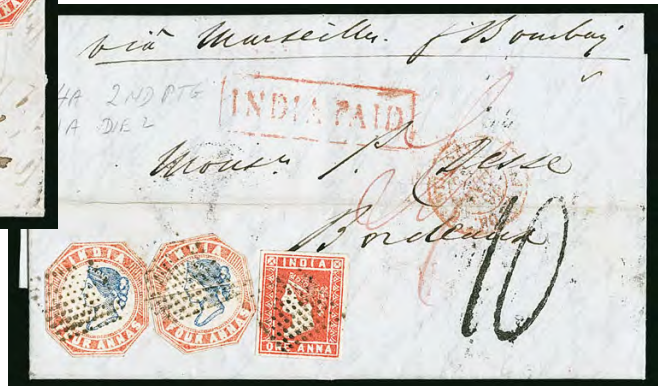 viâ Marseilles. p Bombay
4A 2ND PTG
1A DIE 2
INDIA PAID
Monsr P. Desse
Bordeaux
10
INDIA
FOUR ANNAS
INDIA
FOUR ANNAS
INDIA
ONE ANNA